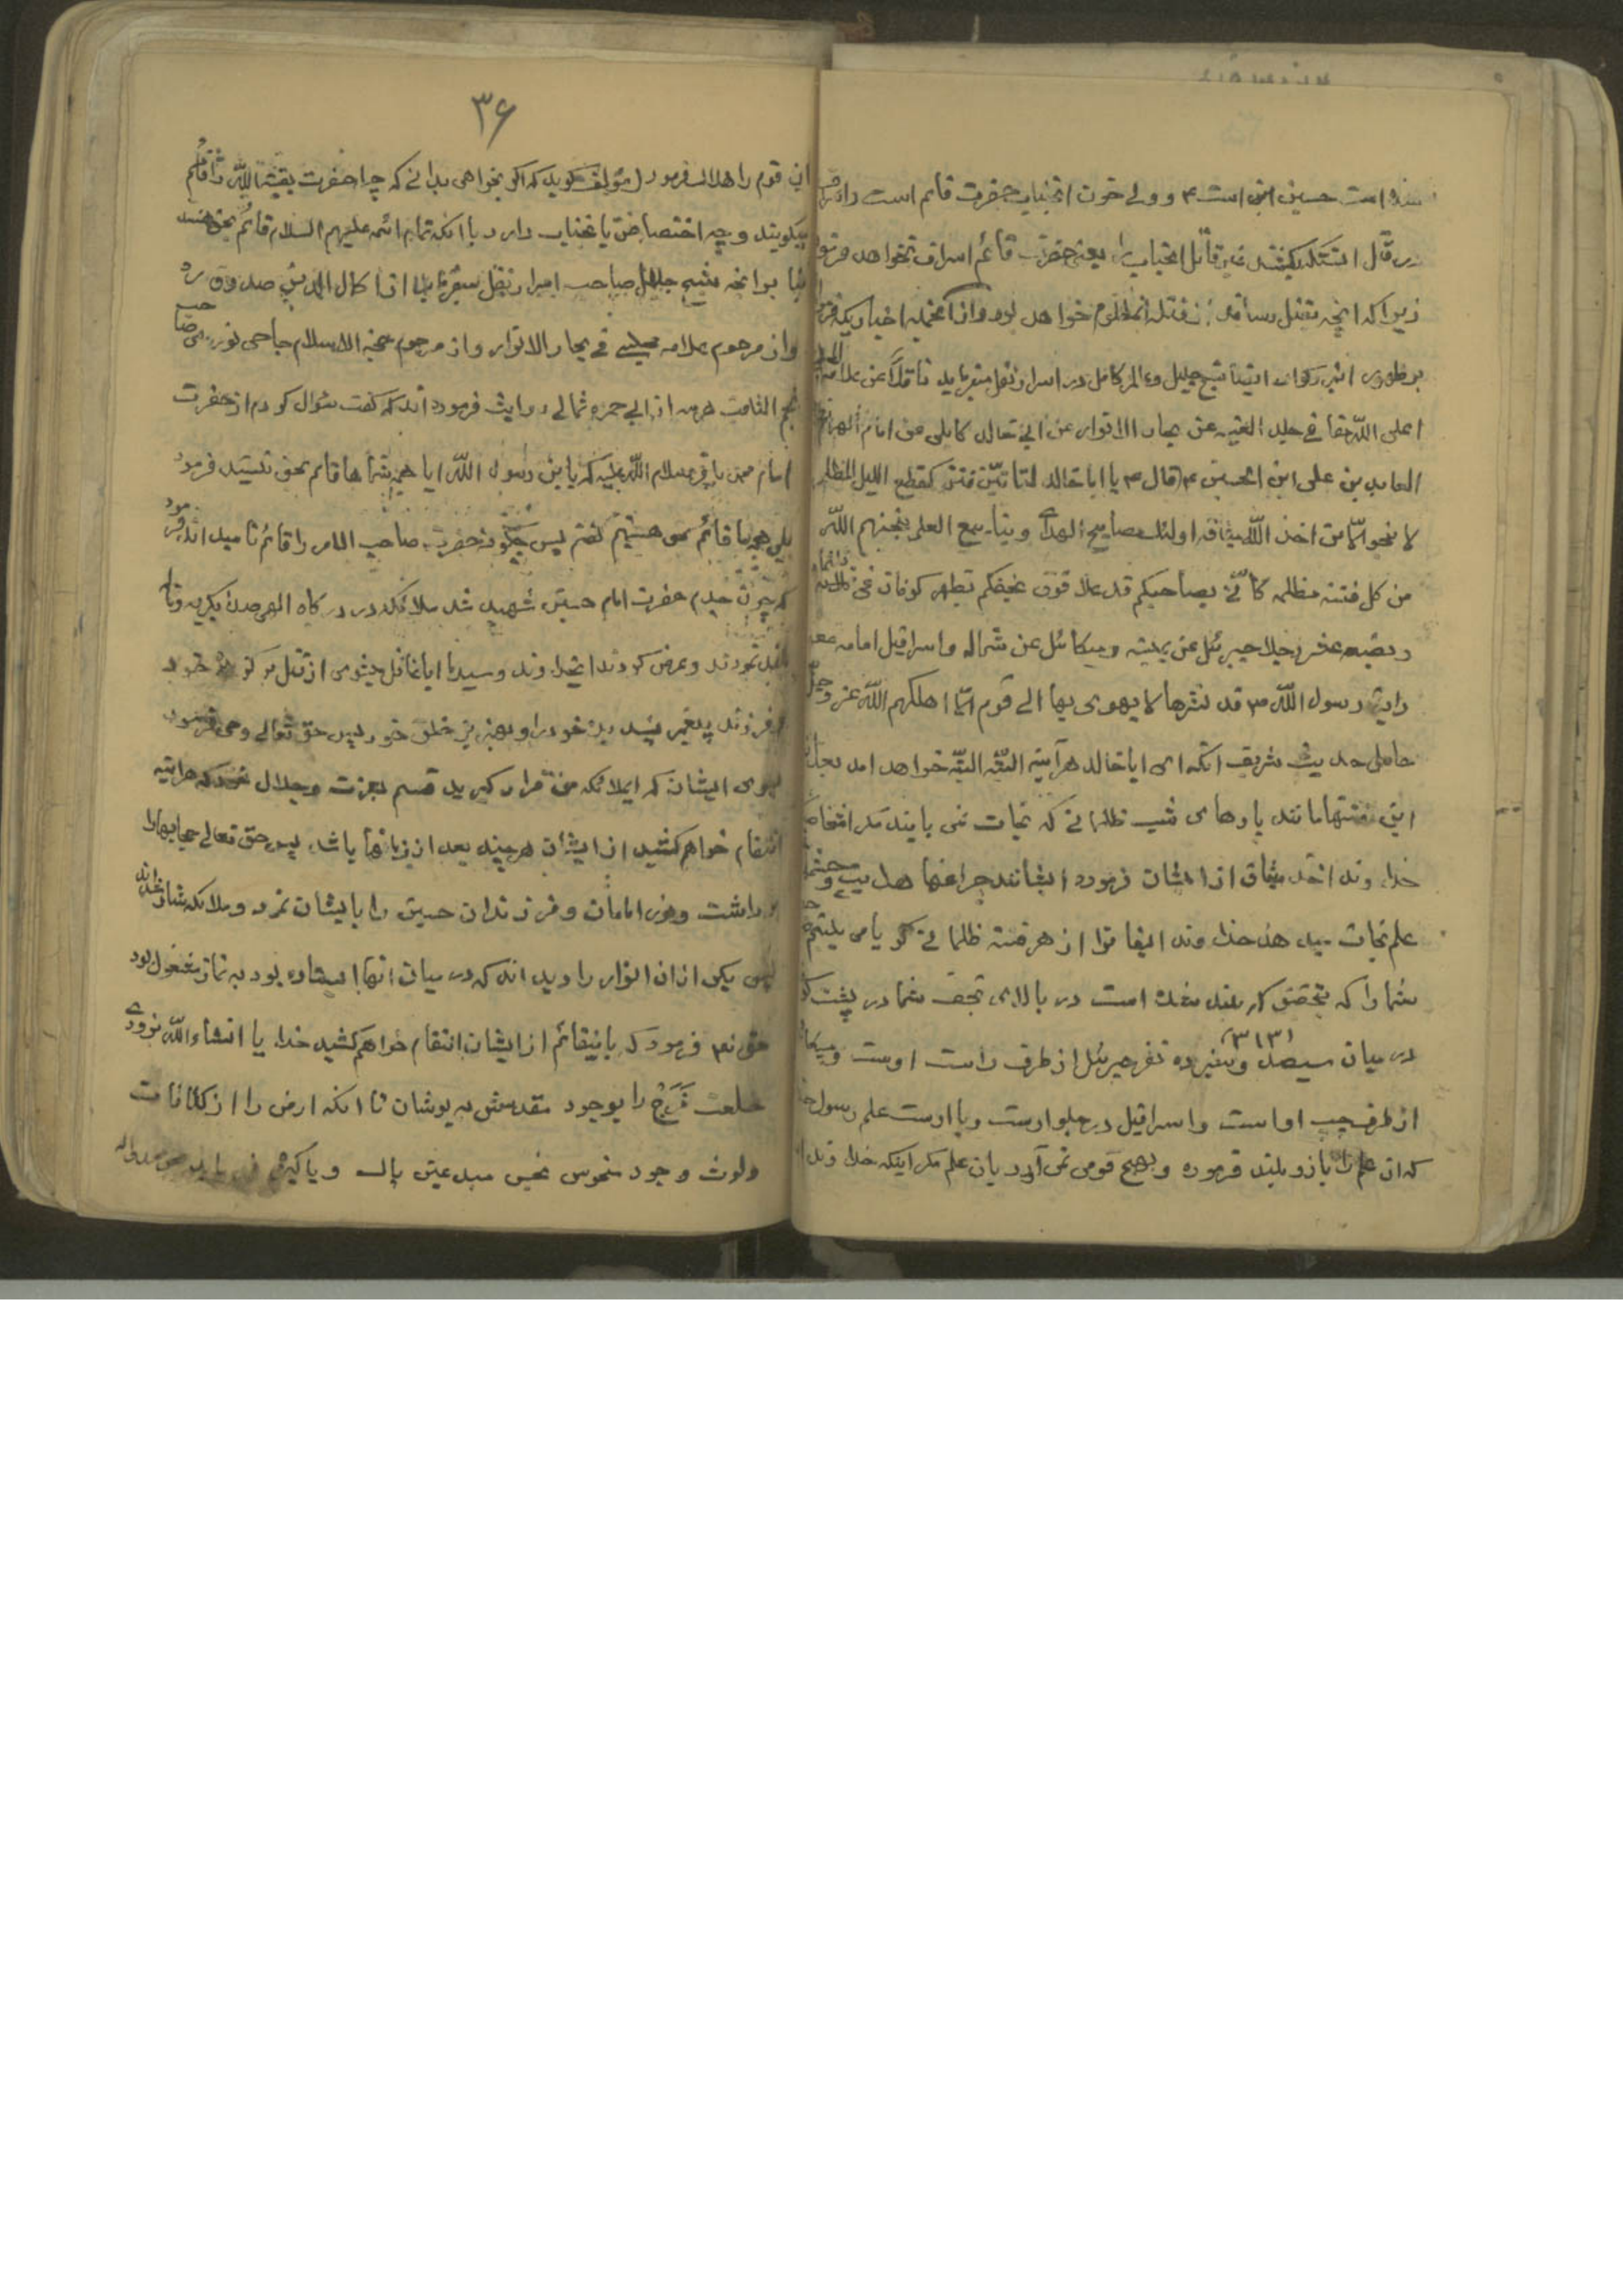 شده است حسین ابن است ۴ و ولی خون آنجناب حضرت قائم است
در قتل اینکه بکشد غیر قاتل آنجناب را یعنی حضرت قائم اسراف نخواهد
زیرا که آنچه بقتل رساند از قتله آنمظلوم خواهد بود و از آنجمله اخباریکه
بر ظهوری این شیخ جلیل و عالم کامل در اسرار نقل میفرماید ناقلاً عن علامه
اعلی الله مقامه فی جلد الغیبه عن بحار الانوار عن ابی خالد کابلی عن امام
العابدین علی ابن الحسین ۴ قال ۴ یا ابا خالد لتاتینّ فتن کقطع اللیل المظلم
لا ینجو الّا من اخذ الله میثاقه اولئک مصابیح الهدی و ینابیع العلم ینجیهم الله
من کل فتنة مظلمه کانّی بصاحبکم قد علا فوق نجفکم بظهر کوفان فی ثلثمائه
و بضعه عشر رجلا جبرئیل عن یمینه و میکائیل عن شماله و اسرافیل امامه معه
رایة رسول الله ص قد نشرها لا یهوی بها الی قوم الّا اهلکهم الله عز و جلّ
حاصل حدیث شریف آنکه ای ابا خالد هرآینه البتّه البتّه خواهد آمد
این فتنها مانند پارهای شب ظلمانی که نجات نمی یابند مگر
خداوند اخذ میثاق از ایشان فرموده ایشانند چراغها هدایت و
علم نجات میدهد خداوند ایشانرا از هر فتنه ظلمانی گویا می بینم
شما را که بتحقیق که بلند شده است در بالای نجف شما در پشت
(۳۱۳)
در میان سیصد و سیزده نفر جبرئیل از طرف راست اوست و
از طرف چپ او است و اسرافیل در جلو اوست و با اوست علم رسول
که آن علم را باز و بلند فرموده و بهیچ قومی نمی آورد بآن علم مگر اینکه خداوند
۳۶
آن قوم را هلاک فرمود مؤلف گوید که اگر بخواهی بدانی که چرا حضرت بقیة الله را قائم
میگویند و چه اختصاص بآنجناب دارد با آنکه تمام ائمه علیهم السلام قائم بحق هستند
بنا بر آنچه شیخ جلیل صاحب اسرار نقل میفرماید از اکمال الدین صدوق ره
و از مرحوم علامه مجلسی فی بحار الانوار و از مرحوم حجة الاسلام حاجی نوری صاحب
نجم الثاقب هرسه از ابی حمزه ثمالی روایت فرموده اند که گفت سؤال کردم از حضرت
امام محمد باقر سلام الله علیه که یابن رسول الله آیا همه شماها قائم بحق نیستید فرمود
بلی همه ما قائم بحق هستیم گفتم پس چگونه حضرت صاحب الامر را قائم نامیده اند فرمود
که چون جدم حضرت امام حسین شهید شد ملائکه در درگاه الهی صدا بگریه و
بلند نمودند و عرض کردند ایخداوند و سید ما آیا غافل میشوی از قتل برگزیده خود
و فرزند پیغمبر پسندیده خود را و بهترین خلق خود پس حق تعالی وحی فرمود
بسوی ایشان که ایملائکه من قرار گیرید قسم بعزت و جلال خود که هرآینه
انتقام خواهم کشید از ایشان هرچند بعد از زمانها باشد پس حق تعالی حجابها را
برداشت و نور امامان و فرزندان حسین را بایشان نمود و ملائکه شاد شدند
پس یکی از آن انوار را دیدند که در میان آنها ایستاده بود به نماز مشغول بود
حق تعالی فرمود که باینقائم از ایشان انتقام خواهم کشید خدایا انشاءالله بزودی
خلعت فَرَج را بوجود مقدسش به پوشان تا آنکه ارض را از کثافات
ولوث وجود منحوس نجس مبدعین پاک و پاکیزه